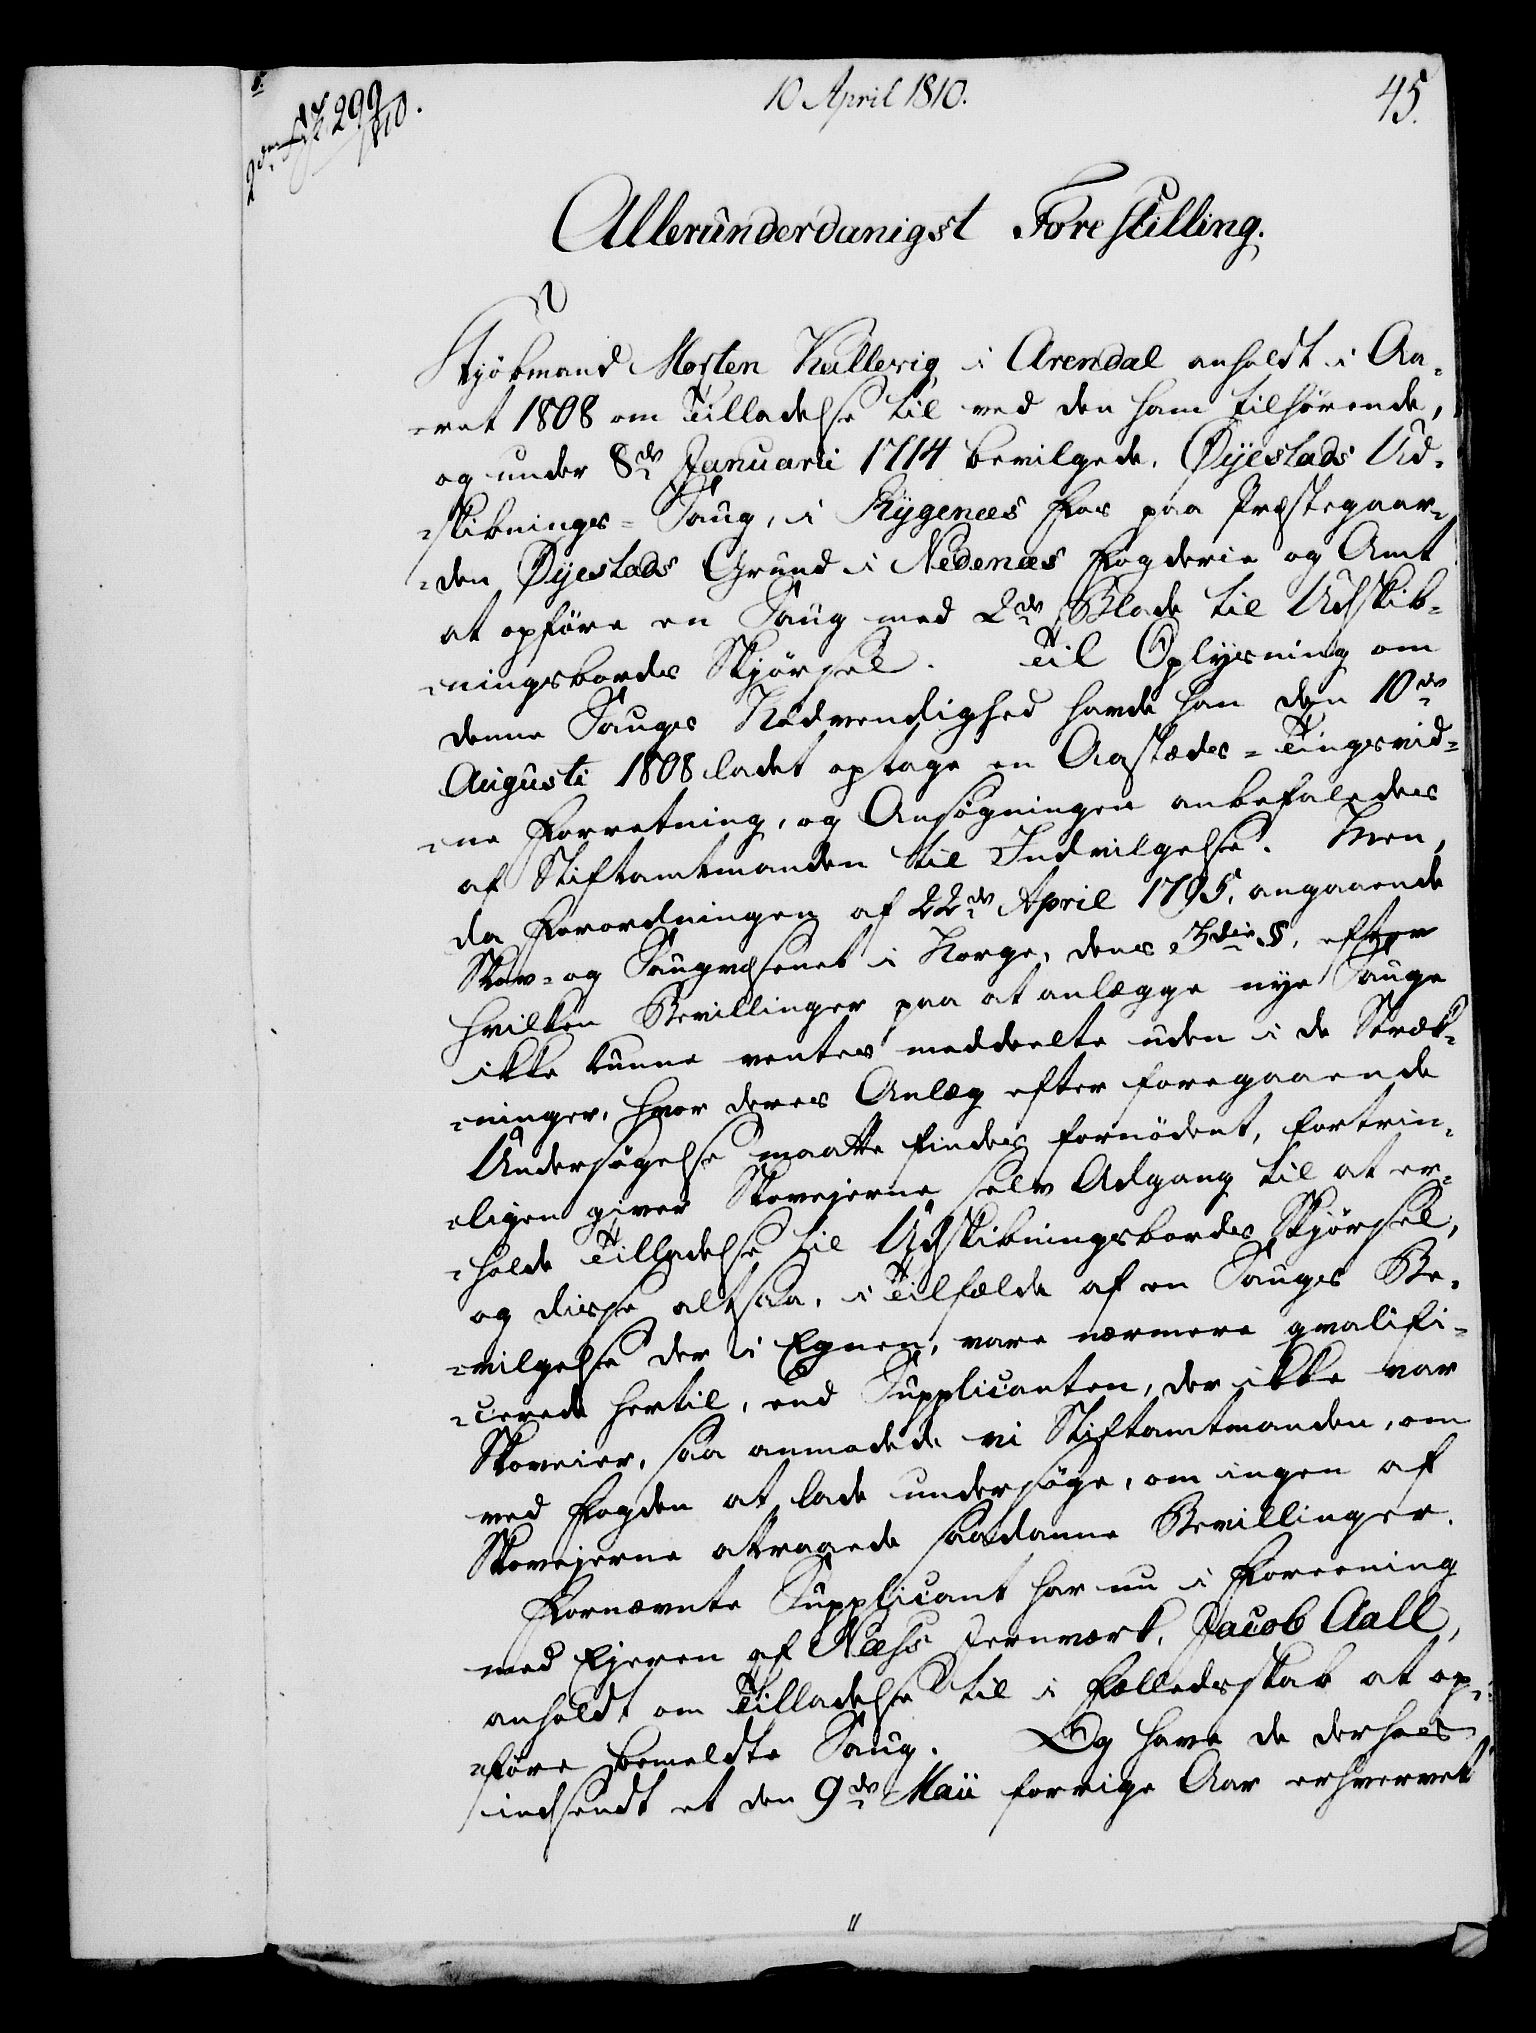 10 April 1810.
45.
299
1810.
Allerunderdanigst Forestilling.
Kjöbmand Morten Kallevig i Arendal anholdt i Aa-
-ret 1808 om Tilladelse til ved den ham tilhørende,
og under 8de Januarii 1714 bevilgede, Øyestads Ud-
-skibnings-Saug, i Rygenees Fos paa Præstegaar-
-den Øyestads Grund i Nedenæs Fogderie og Amt
at opföre en Saug med 2de Blade til Udskib-
-ningsbordes Skjörsel. Til Oplysning om
denne Saugs Nödvendighed havde han den 10de
Augusti 1808 ladet optage en Aastæds-Tingsvid-
-ne Forretning, og Ansögningen anbefaledes
af Stiftamtmanden til Indvilgelse. Men,
da Forordningen af 22de April 1795, angaaende
Skov- og Saugvæsenet i Norge, dens 3die §, efter
hvilken Bevillinger paa at anlægge nye Sauge
ikke kunne ventes meddeelte uden i de Stræk-
-ninger, hvor deres Anlæg efter foregaaende
Undersögelse maatte findes fornödent, fortrin-
-ligen giver Skovejerne selv Adgang til at er-
-holde Tilladelse til Udskibningsbordes Skjörsel,
og disse altsaa, i Tilfælde af en Saugs Be-
-vilgelse der i Egnen, vare nærmere qvalifi-
-cerede hertil, end Supplicanten, der ikke var
Skoveier, saa anmodede vi Stiftamtmanden, om
ved Fogden at lade undersöge, om ingen af
Skovejerne attraaede saadanne Bevillinger.
Fornævnte Supplicant har nu i Foreening
med Ejeren af Næss Jernværk, Jacob Aall,
anholdt om Tilladelse til i Fælledsskab at op-
-före bemeldte Saug. Og have de derhos
indsendt et den 9de Maii forrige Aar erhvervet